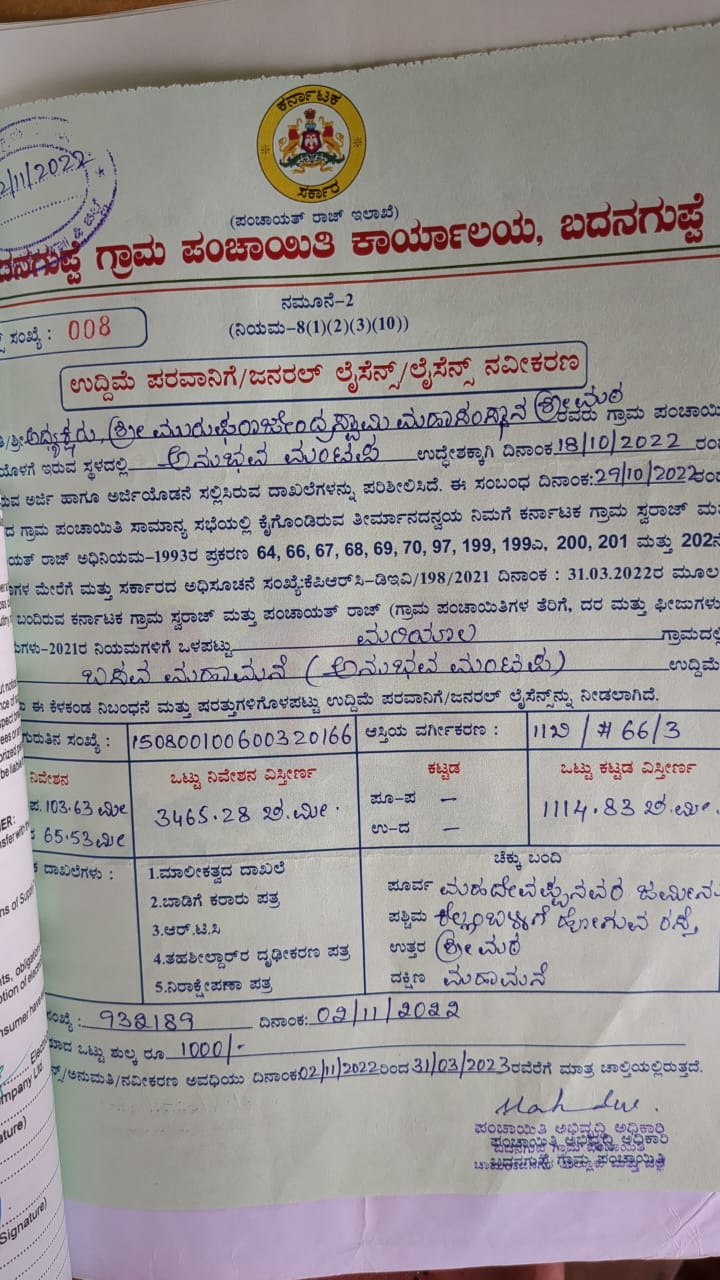 ಕರ್ನಾಟಕ
ಸರ್ಕಾರ
2/11/2022
(ಪಂಚಾಯತ್ ರಾಜ್ ಇಲಾಖೆ)
ದನಗುಪ್ಪೆ ಗ್ರಾಮ ಪಂಚಾಯಿತಿ ಕಾರ್ಯಾಲಯ, ಬದನಗುಪ್ಪೆ
ನಮೂನೆ-2
(ನಿಯಮ-8(1)(2)(3)(10))
ಸಂಖ್ಯೆ : 008
ಉದ್ದಿಮೆ ಪರವಾನಿಗೆ/ಜನರಲ್ ಲೈಸೆನ್ಸ್/ಲೈಸೆನ್ಸ್ ನವೀಕರಣ
ಅಧ್ಯಕ್ಷರು, ಶ್ರೀ ಮುರುಘರಾಜೇಂದ್ರಸ್ವಾಮಿ ಮಹಾಸಂಸ್ಥಾನ ಶ್ರೀಮಠ ರವರು ಗ್ರಾಮ ಪಂಚಾಯಿ
ಯೊಳಗೆ ಇರುವ ಸ್ಥಳದಲ್ಲಿ ಅನುಭವ ಮಂಟಪ ಉದ್ಧೇಶಕ್ಕಾಗಿ ದಿನಾಂಕ 18/10/2022 ರಂ
ರುವ ಅರ್ಜಿ ಹಾಗೂ ಅರ್ಜಿಯೊಡನೆ ಸಲ್ಲಿಸಿರುವ ದಾಖಲೆಗಳನ್ನು ಪರಿಶೀಲಿಸಿದೆ. ಈ ಸಂಬಂಧ ದಿನಾಂಕ:29/10/2022ರಂ
ದ ಗ್ರಾಮ ಪಂಚಾಯಿತಿ ಸಾಮಾನ್ಯ ಸಭೆಯಲ್ಲಿ ಕೈಗೊಂಡಿರುವ ತೀರ್ಮಾನದನ್ವಯ ನಿಮಗೆ ಕರ್ನಾಟಕ ಗ್ರಾಮ ಸ್ವರಾಜ್ ಮ
ಯತ್ ರಾಜ್ ಅಧಿನಿಯಮ-1993ರ ಪ್ರಕರಣ 64, 66, 67, 68, 69, 70, 97, 199, 199ಎ, 200, 201 ಮತ್ತು 202ನ
ಗಳ ಮೇರೆಗೆ ಮತ್ತು ಸರ್ಕಾರದ ಅಧಿಸೂಚನೆ ಸಂಖ್ಯೆ:ಕೆಪಿಆರ್‌ಸಿ-ಡಿಇವಿ/198/2021 ದಿನಾಂಕ : 31.03.2022ರ ಮೂಲ
ಬಂದಿರುವ ಕರ್ನಾಟಕ ಗ್ರಾಮ ಸ್ವರಾಜ್ ಮತ್ತು ಪಂಚಾಯತ್ ರಾಜ್ (ಗ್ರಾಮ ಪಂಚಾಯಿತಿಗಳ ತೆರಿಗೆ, ದರ ಮತ್ತು ಫೀಜುಗಳು
ಗಳು-2021ರ ನಿಯಮಗಳಿಗೆ ಒಳಪಟ್ಟು ಮರಿಯಾಲ ಗ್ರಾಮದಲ್ಲಿ
ಬಸವ ಮಹಾಮನೆ (ಅನುಭವ ಮಂಟಪ) ಉದ್ದಿಮೆ
ಈ ಕೆಳಕಂಡ ನಿಬಂಧನೆ ಮತ್ತು ಷರತ್ತುಗಳಿಗೊಳಪಟ್ಟು ಉದ್ದಿಮೆ ಪರವಾನಿಗೆ/ಜನರಲ್ ಲೈಸೆನ್ಸ್‌ನ್ನು ನೀಡಲಾಗಿದೆ.
ಗುರುತಿನ ಸಂಖ್ಯೆ : 150800100600320166 ಆಸ್ತಿಯ ವರ್ಗೀಕರಣ : 11ಬಿ / # 66/3
ನಿವೇಶನ ಒಟ್ಟು ನಿವೇಶನ ವಿಸ್ತೀರ್ಣ ಕಟ್ಟಡ ಒಟ್ಟು ಕಟ್ಟಡ ವಿಸ್ತೀರ್ಣ
ಪ. 103.63 ಮೀ 3465.28 ಚ.ಮೀ. ಪೂ-ಪ — 1114.83 ಚ.ಮೀ.
65.53ಮೀ ಉ-ದ —
ದಾಖಲೆಗಳು : 1.ಮಾಲೀಕತ್ವದ ದಾಖಲೆ ಚೆಕ್ಕು ಬಂದಿ
2.ಬಾಡಿಗೆ ಕರಾರು ಪತ್ರ ಪೂರ್ವ ಮಹದೇವಪ್ಪನವರ ಜಮೀನು
3.ಆರ್.ಟಿ.ಸಿ ಪಶ್ಚಿಮ ಹೋಗುವ ರಸ್ತೆ
4.ತಹಶೀಲ್ದಾರ್‌ರ ದೃಢೀಕರಣ ಪತ್ರ ಉತ್ತರ ಶ್ರೀಮಠ
5.ನಿರಾಕ್ಷೇಪಣಾ ಪತ್ರ ದಕ್ಷಿಣ ಮಹಾಮನೆ
ಸಂಖ್ಯೆ : 932189 ದಿನಾಂಕ: 02/11/2022
ಒಟ್ಟು ಶುಲ್ಕ ರೂ 1000/-
/ಅನುಮತಿ/ನವೀಕರಣ ಅವಧಿಯು ದಿನಾಂಕ02/11/2022ರಿಂದ 31/03/2023ರವರೆಗೆ ಮಾತ್ರ ಚಾಲ್ತಿಯಲ್ಲಿರುತ್ತದೆ.
ಪಂಚಾಯಿತಿ ಅಭಿವೃದ್ಧಿ ಅಧಿಕಾರಿ
ಬದನಗುಪ್ಪೆ ಗ್ರಾಮ ಪಂಚಾಯಿತಿ